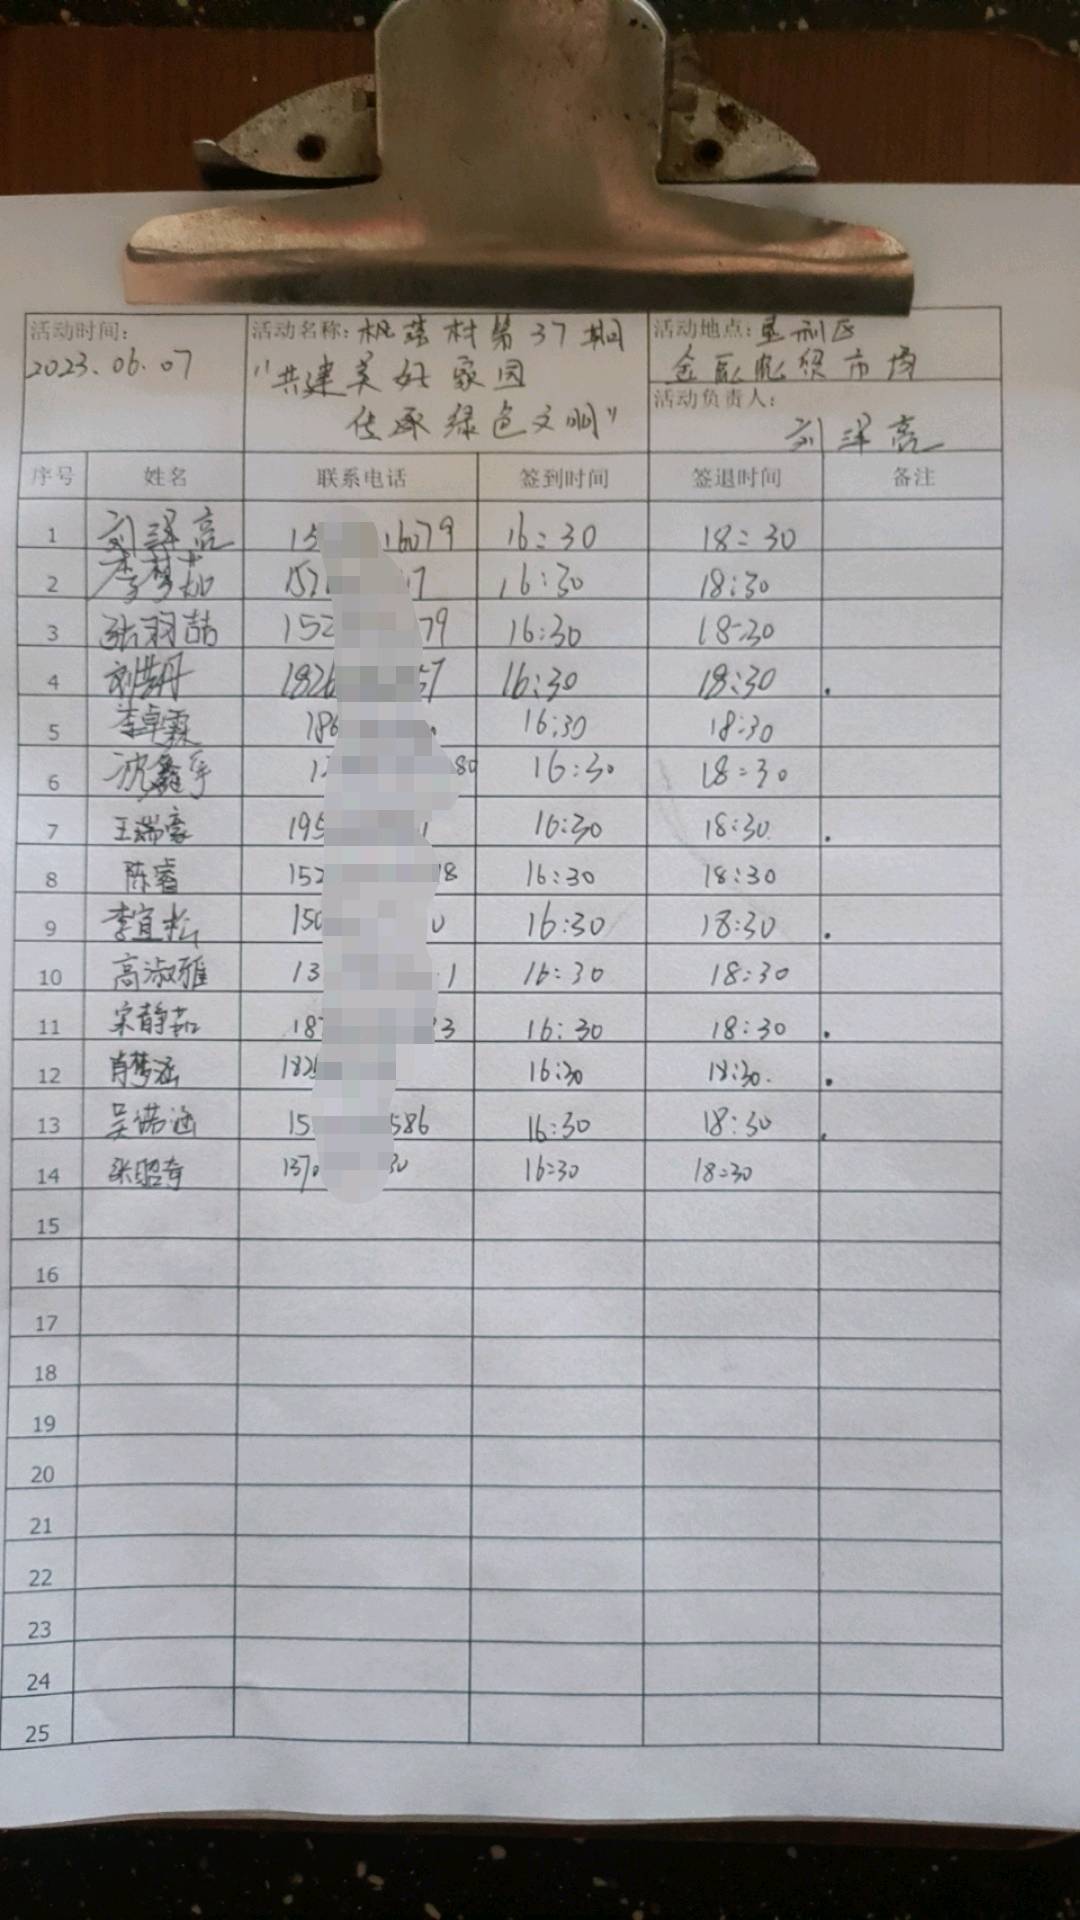 活动时间:
2023.06.07
活动名称: 村第37期
"共建美好家园
传承绿色文明"
活动地点: 垦利区
市场
活动负责人:
刘泽亮
序号 姓名 联系电话 签到时间 签退时间 备注
1 刘泽亮 15 16079 16:30 18:30
2 李梦茹 152 17 16:30 18:30
3 张羽喆 152 79 16:30 18:30
4 刘 丹 1826 57 16:30 18:30
5 李卓霖 186 16:30 18:30
6 沈鑫宇 1 80 16:30 18:30
7 王瑞豪 195 1 16:30 18:30
8 陈睿 152 18 16:30 18:30
9 李宜松 150 0 16:30 18:30
10 高淑雅 13 1 16:30 18:30
11 宋静茹 187 3 16:30 18:30
12 肖梦涵 182 16:30 18:30
13 吴诺涵 15 586 16:30 18:30
14 张昭奇 1370 30 16:30 18:30
15
16
17
18
19
20
21
22
23
24
25